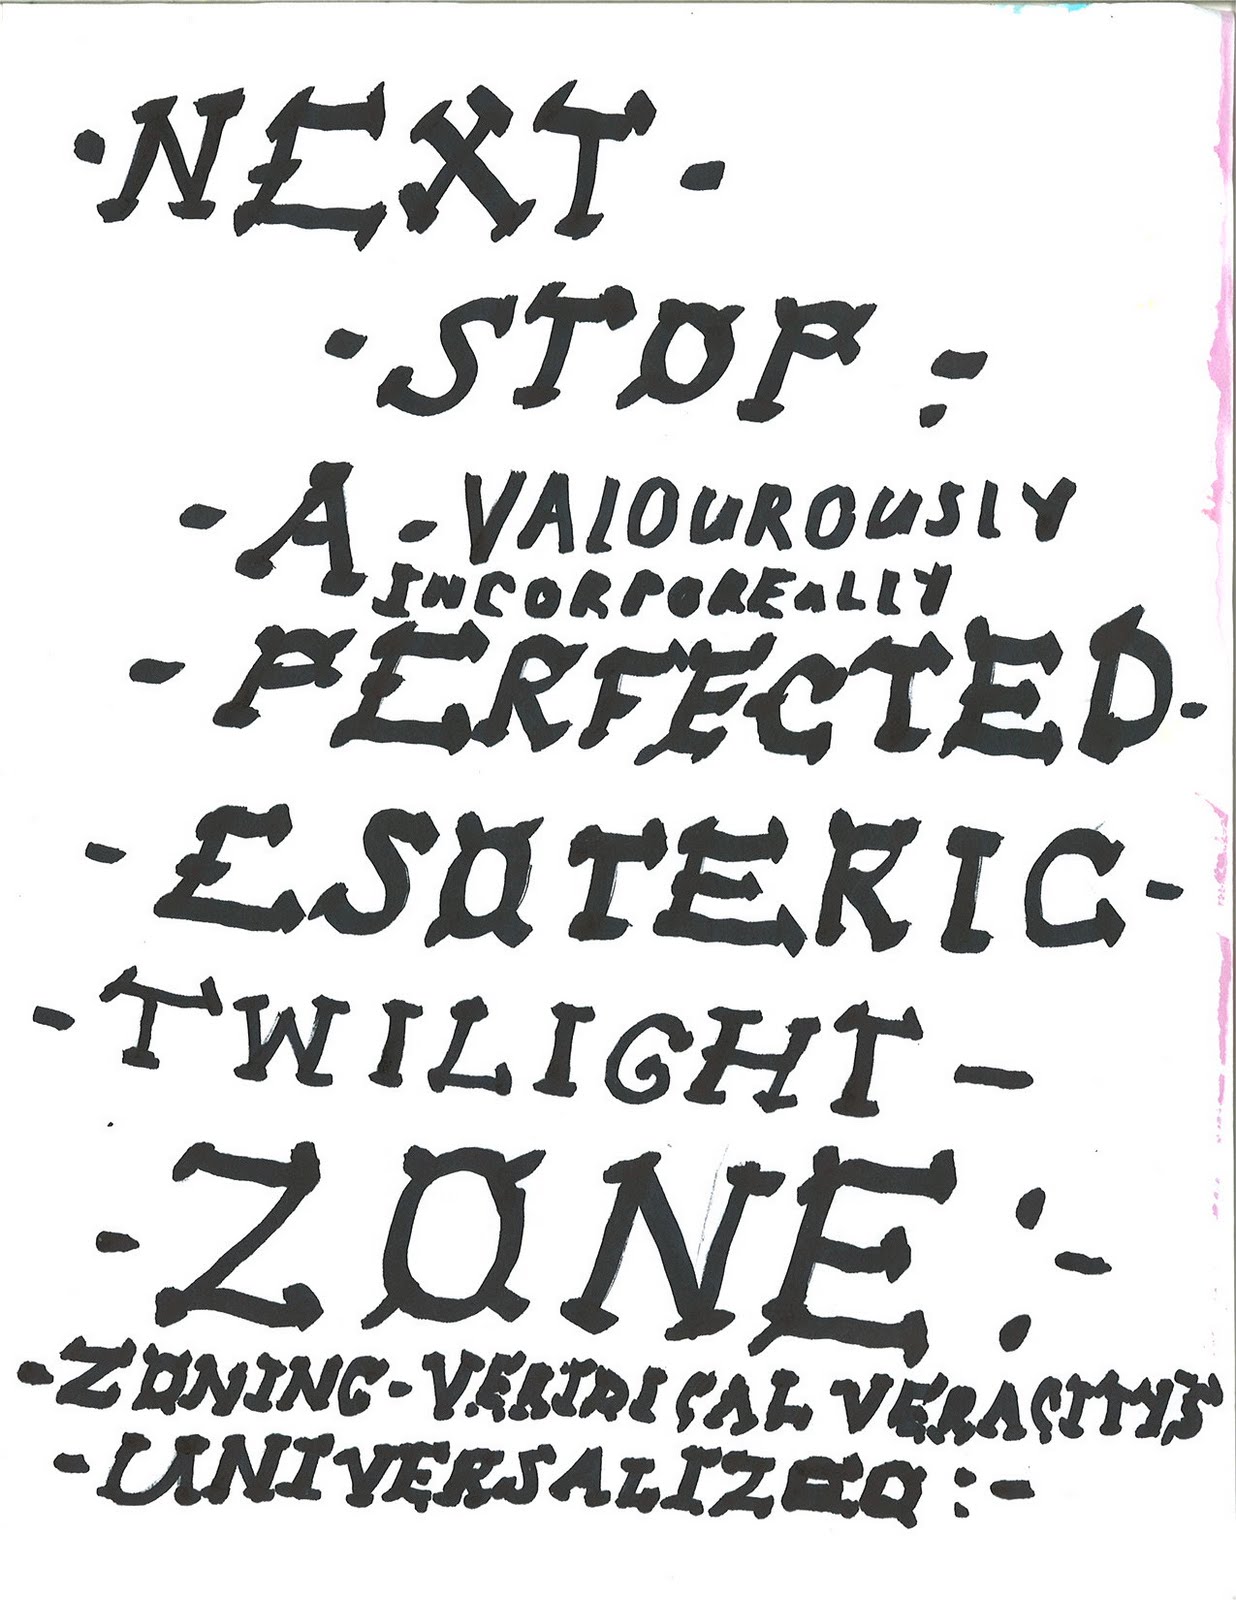 ·NEXT-
-STOP:
-A-VALOUROUSLY
INCORPOREALLY
-PERFECTED-
-ESOTERIC-
-TWILIGHT-
-ZONE:-
-ZONING-VERIDICAL VERACITY'S
-UNIVERSALIZED:-